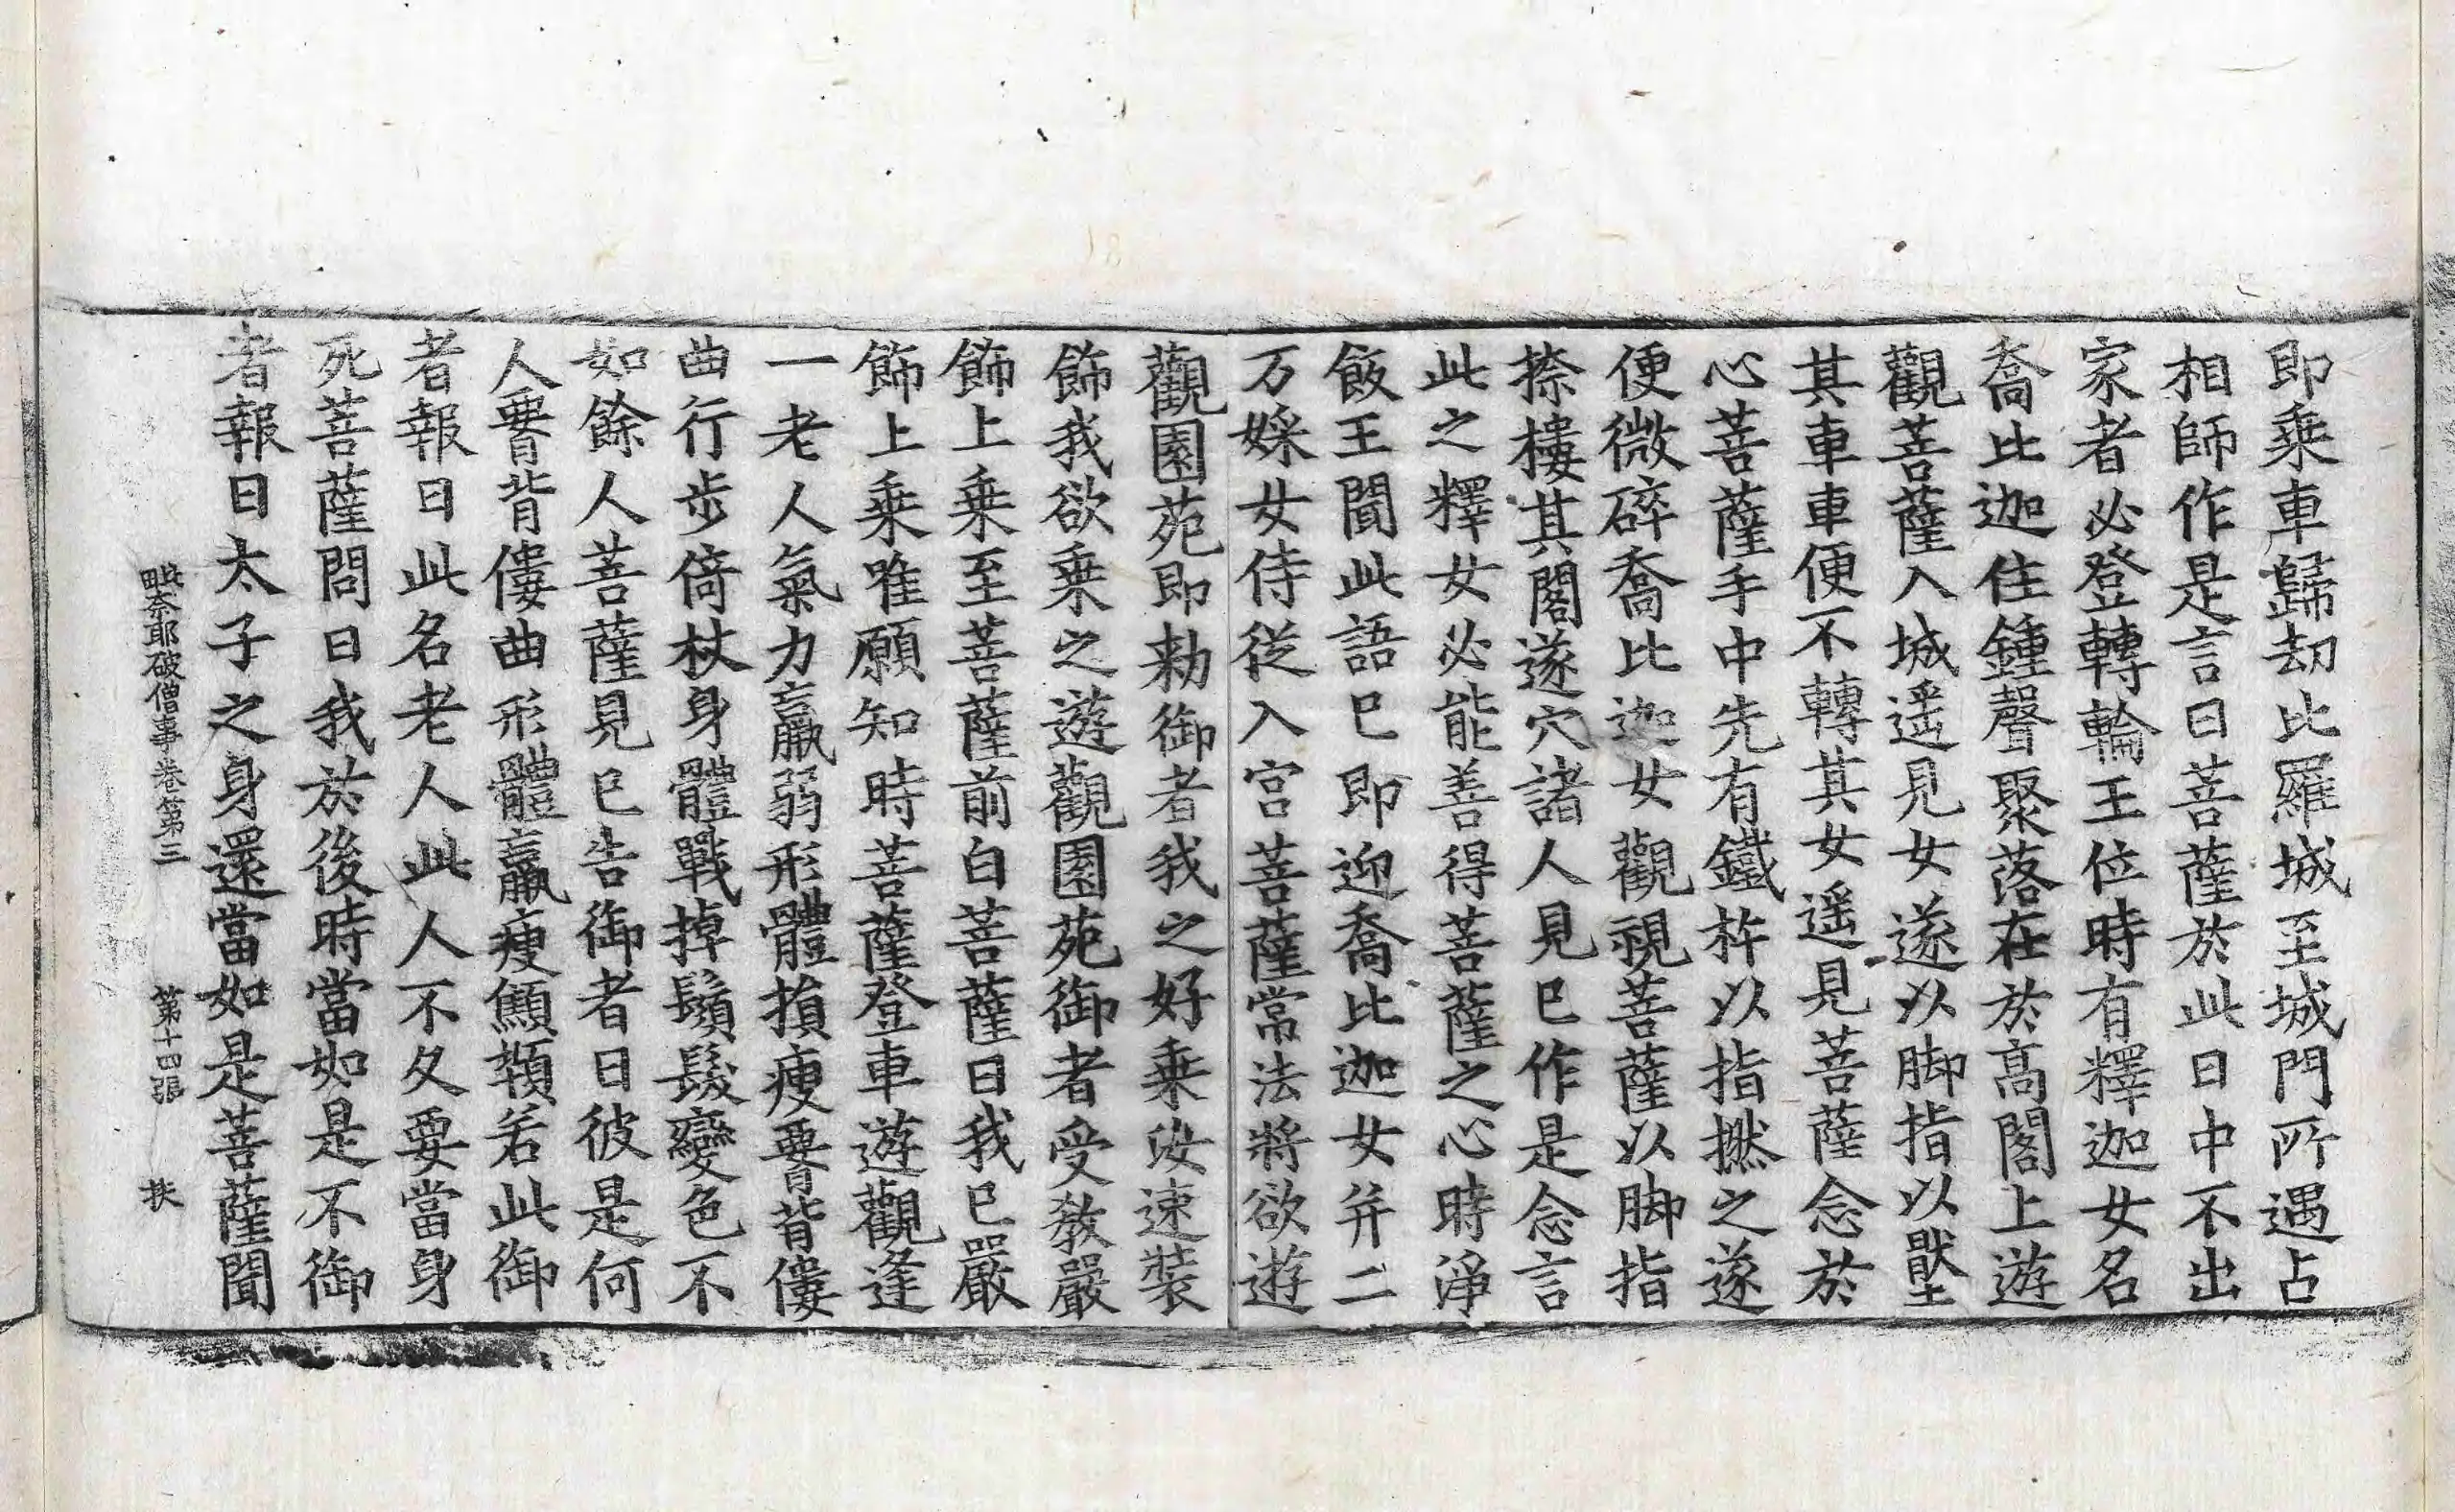 即乗車歸刼比羅城至城門所遇占
相師作是言曰菩薩於此日中不出
家者必登轉輪王位時有釋迦女名
喬比迦住鍾聲聚落在於髙閣上遊
觀菩薩入城遥見女遂以脚指以壓
其車車便不轉其女遥見菩薩念於
心菩薩手中先有鐵杵以指撚之遂
便微碎喬比迦女觀視菩薩以脚指
捺樓其閣遂穴諸人見已作是念言
此之釋女必能善得菩薩之心時淨
飯王聞此語已即迎喬比迦女并二
万婇女侍從入宫菩薩常法將欲遊
觀園苑即勑御者我之好乗汝速裝
飾我欲乗之遊觀園苑御者受教嚴
飾上乗至菩薩前白菩薩曰我已嚴
飾上乗唯願知時菩薩登車遊觀逢
一老人氣力羸弱形體損瘦𦝫背僂
曲行步倚杖身體戰掉鬚髮變色不
如餘人菩薩見已告御者曰彼是何
人𦝫背僂曲形體羸瘦顦顇若此御
者報曰此名老人此人不久要當身
死菩薩問曰我於後時當如是不御
者報曰太子之身還當如是菩薩聞
毗奈耶破僧事卷第三 第十四張 扶